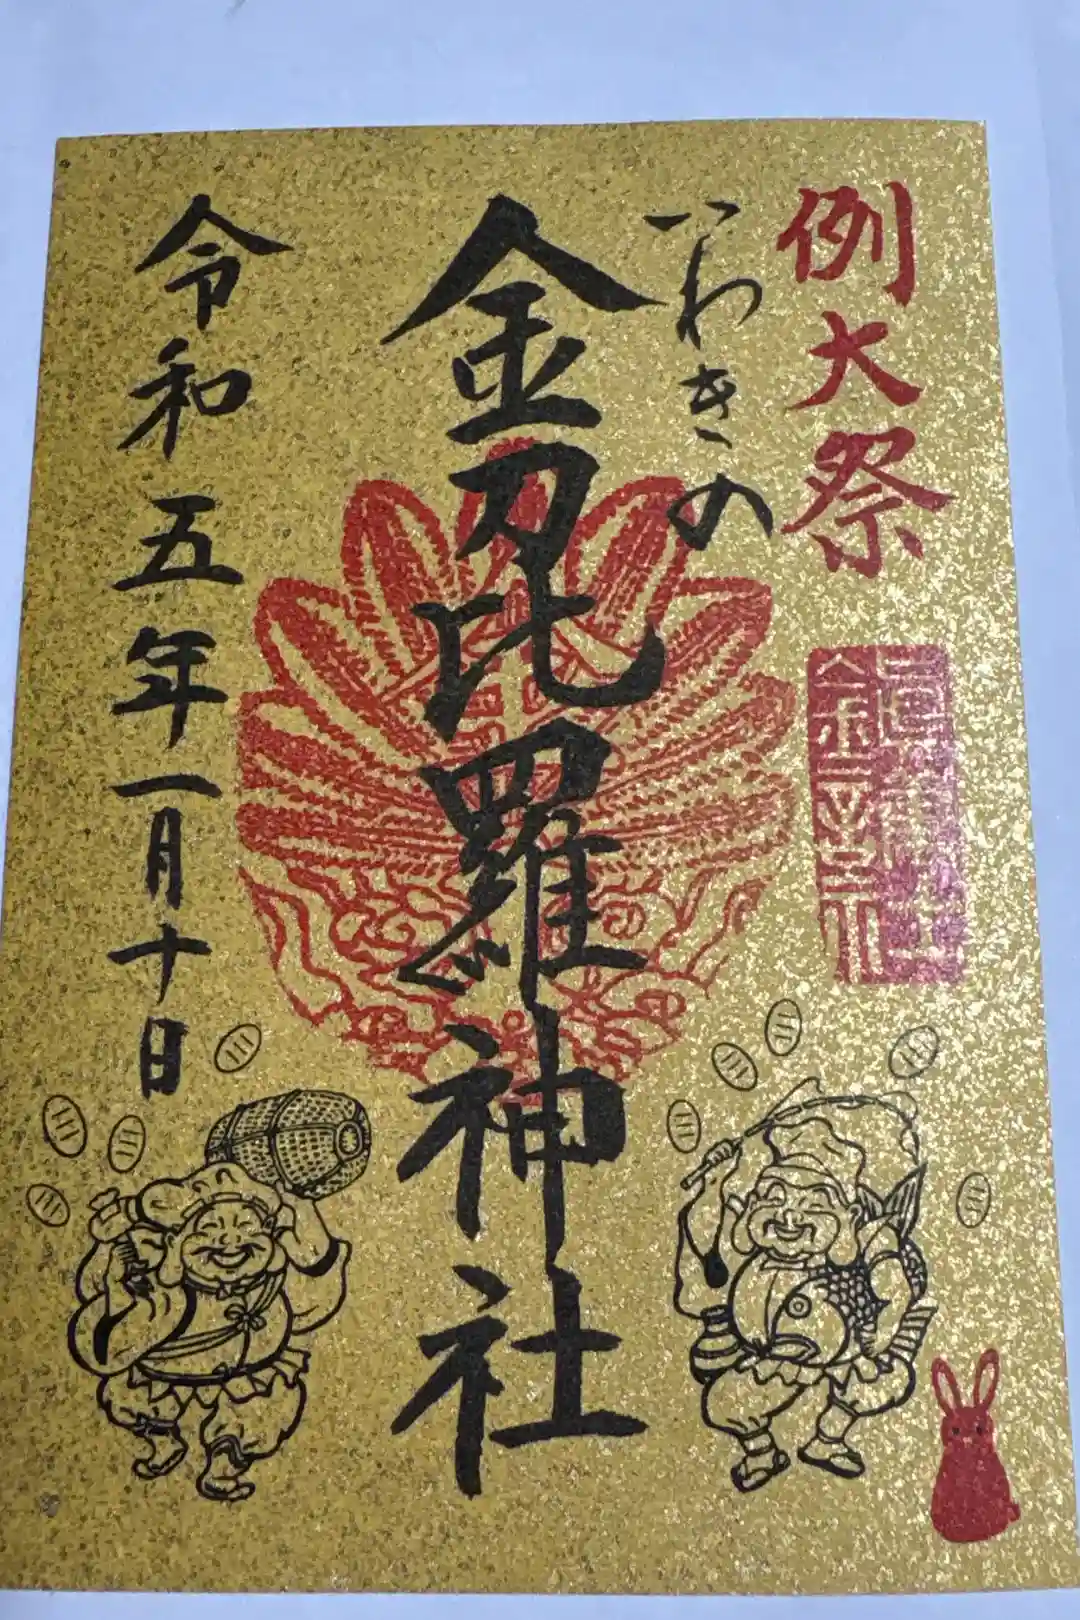 例大祭
いわきの
金刀比羅神社
令和五年一月十日